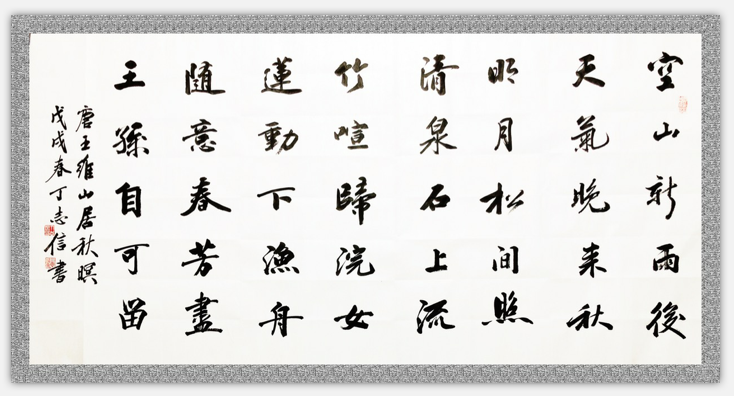 空山新雨後
天氣晚来秋
明月松间照
清泉石上流
竹喧歸浣女
蓮動下漁舟
随意春芳盡
王孫自可留
唐王維山居秋暝
戊戌春丁志信書